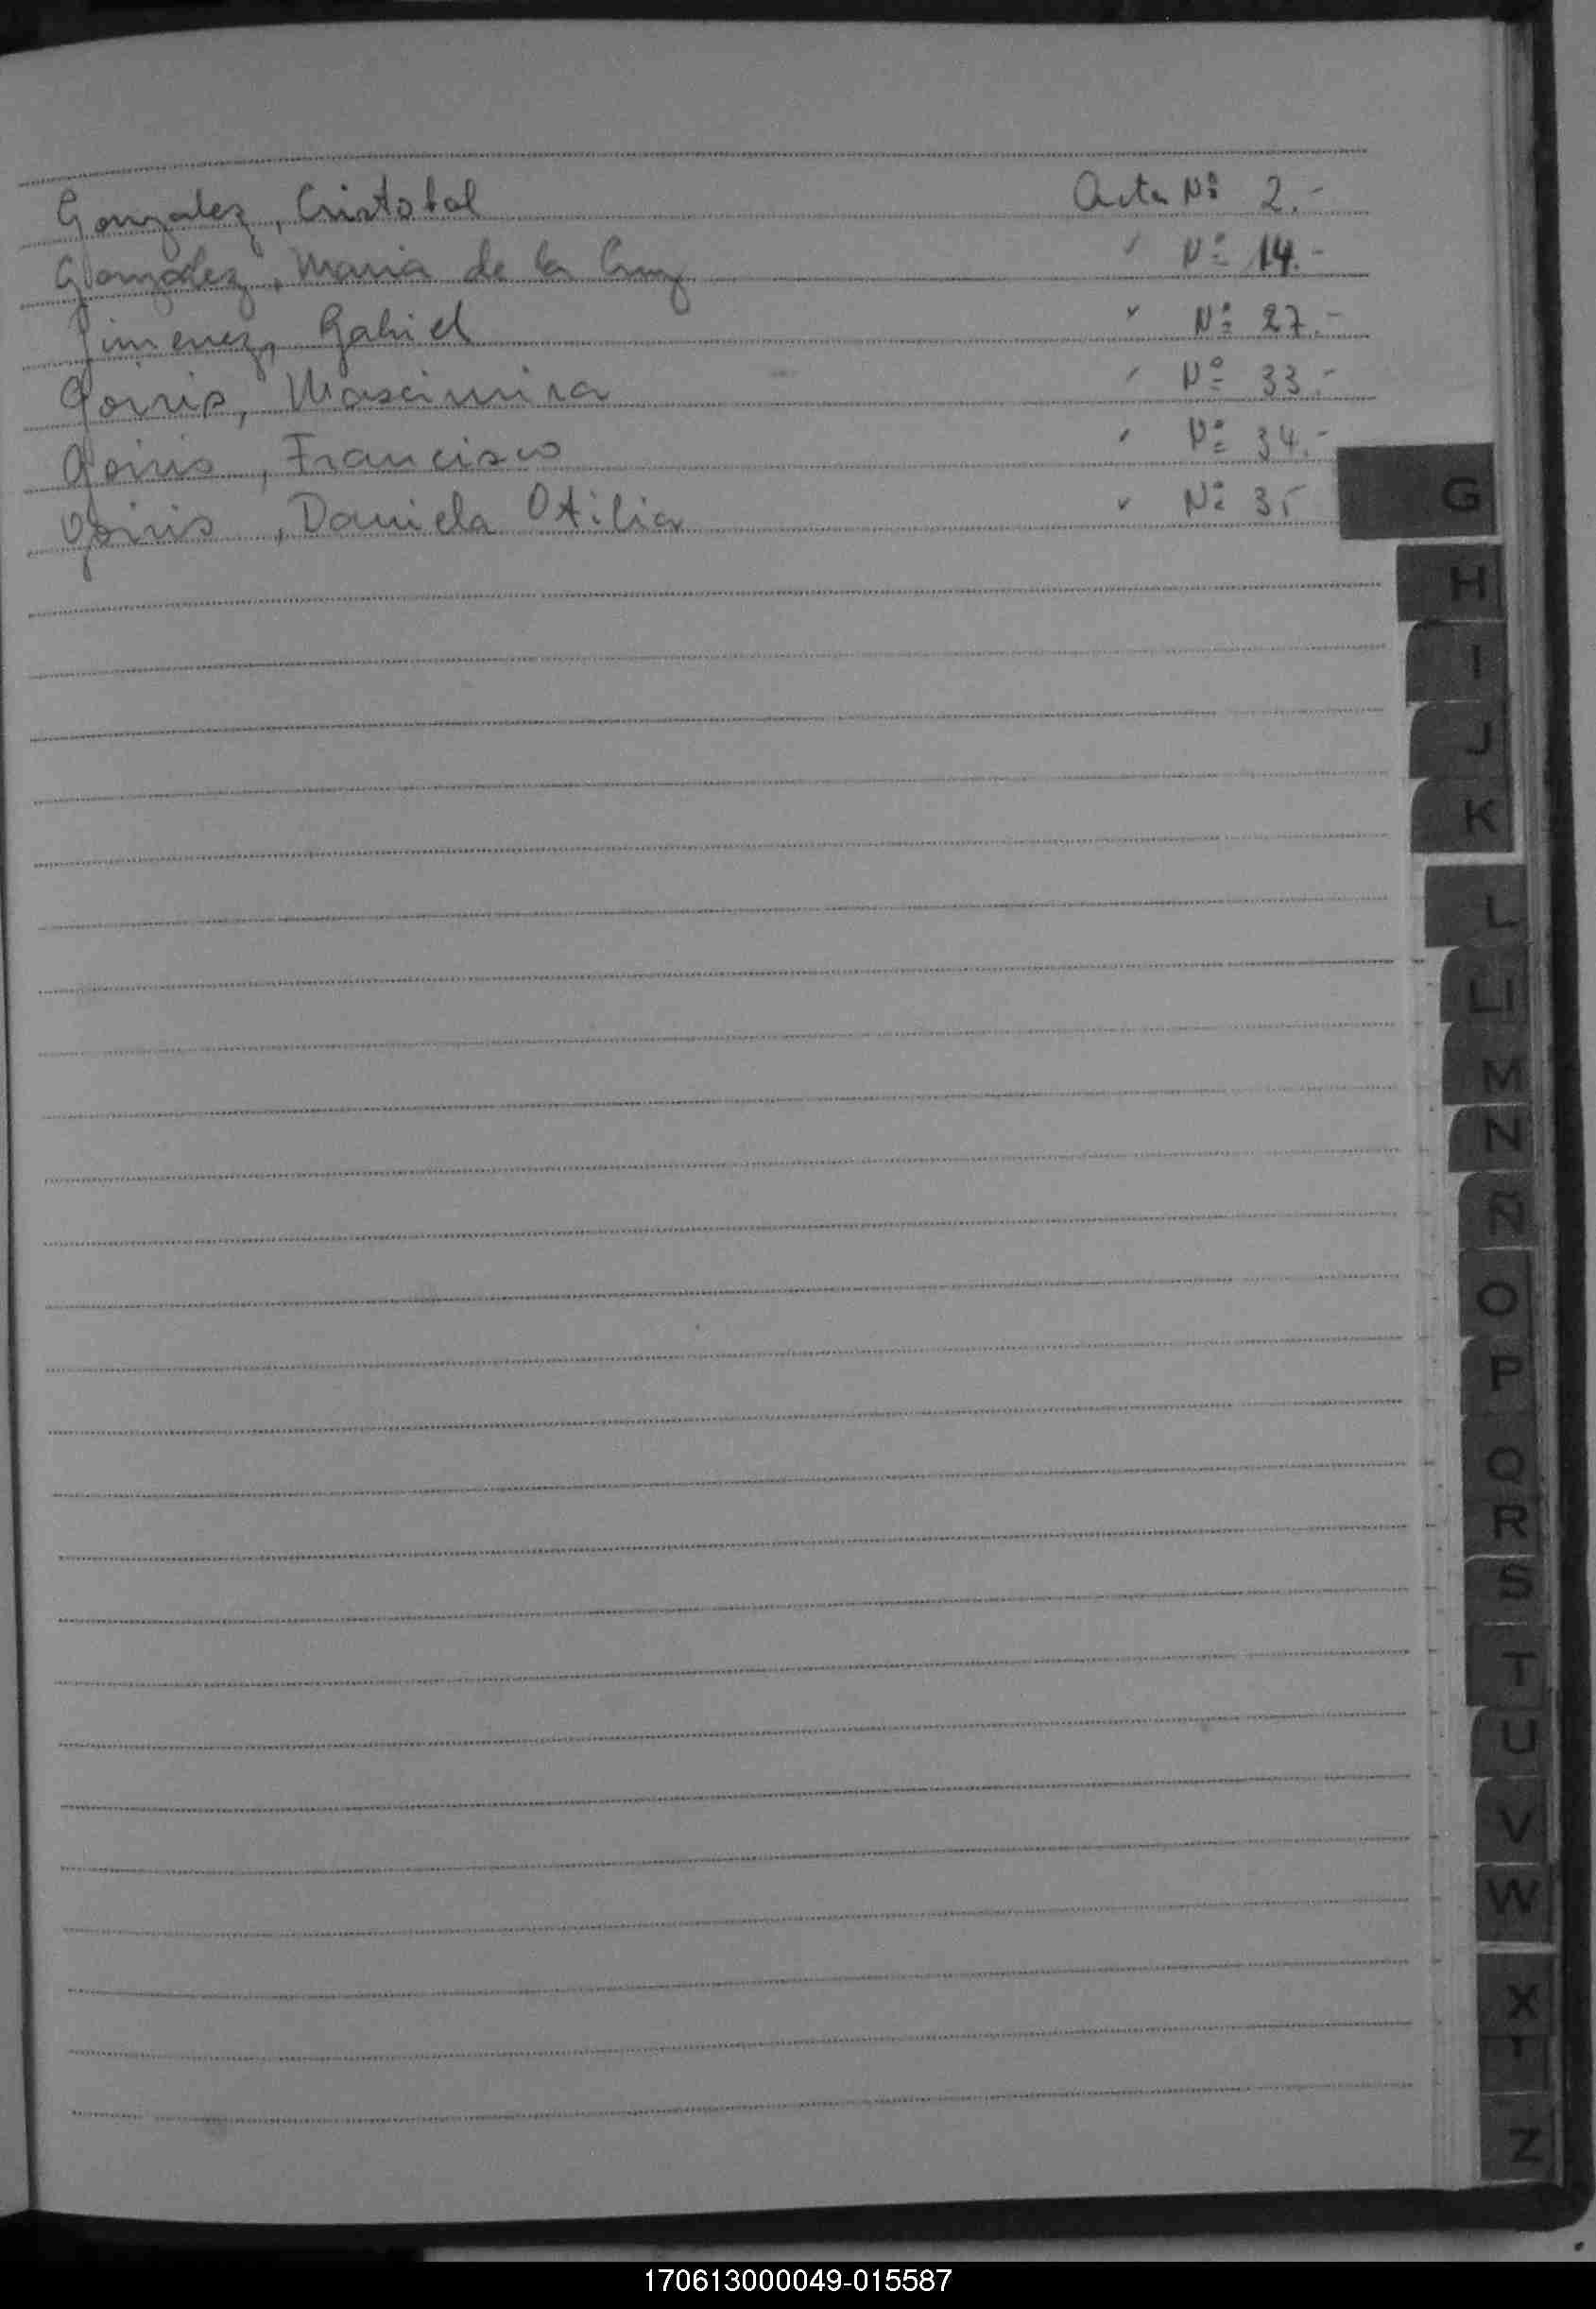 Gonzalez, Cristobal Acta Nº 2.-
Gonzalez, Maria de la Cruz " Nº 14.-
Jimenez, Gabriel " Nº 27.-
Goiris, Mascimina " Nº 33.-
Goiris, Francisco " Nº 34.-
Goiris, Daniela Otilia " Nº 35
G
H
I
J
K
L
Ll
M
N
Ñ
O
P
Q
R
S
T
U
V
W
X
Y
Z
170613000049-015587